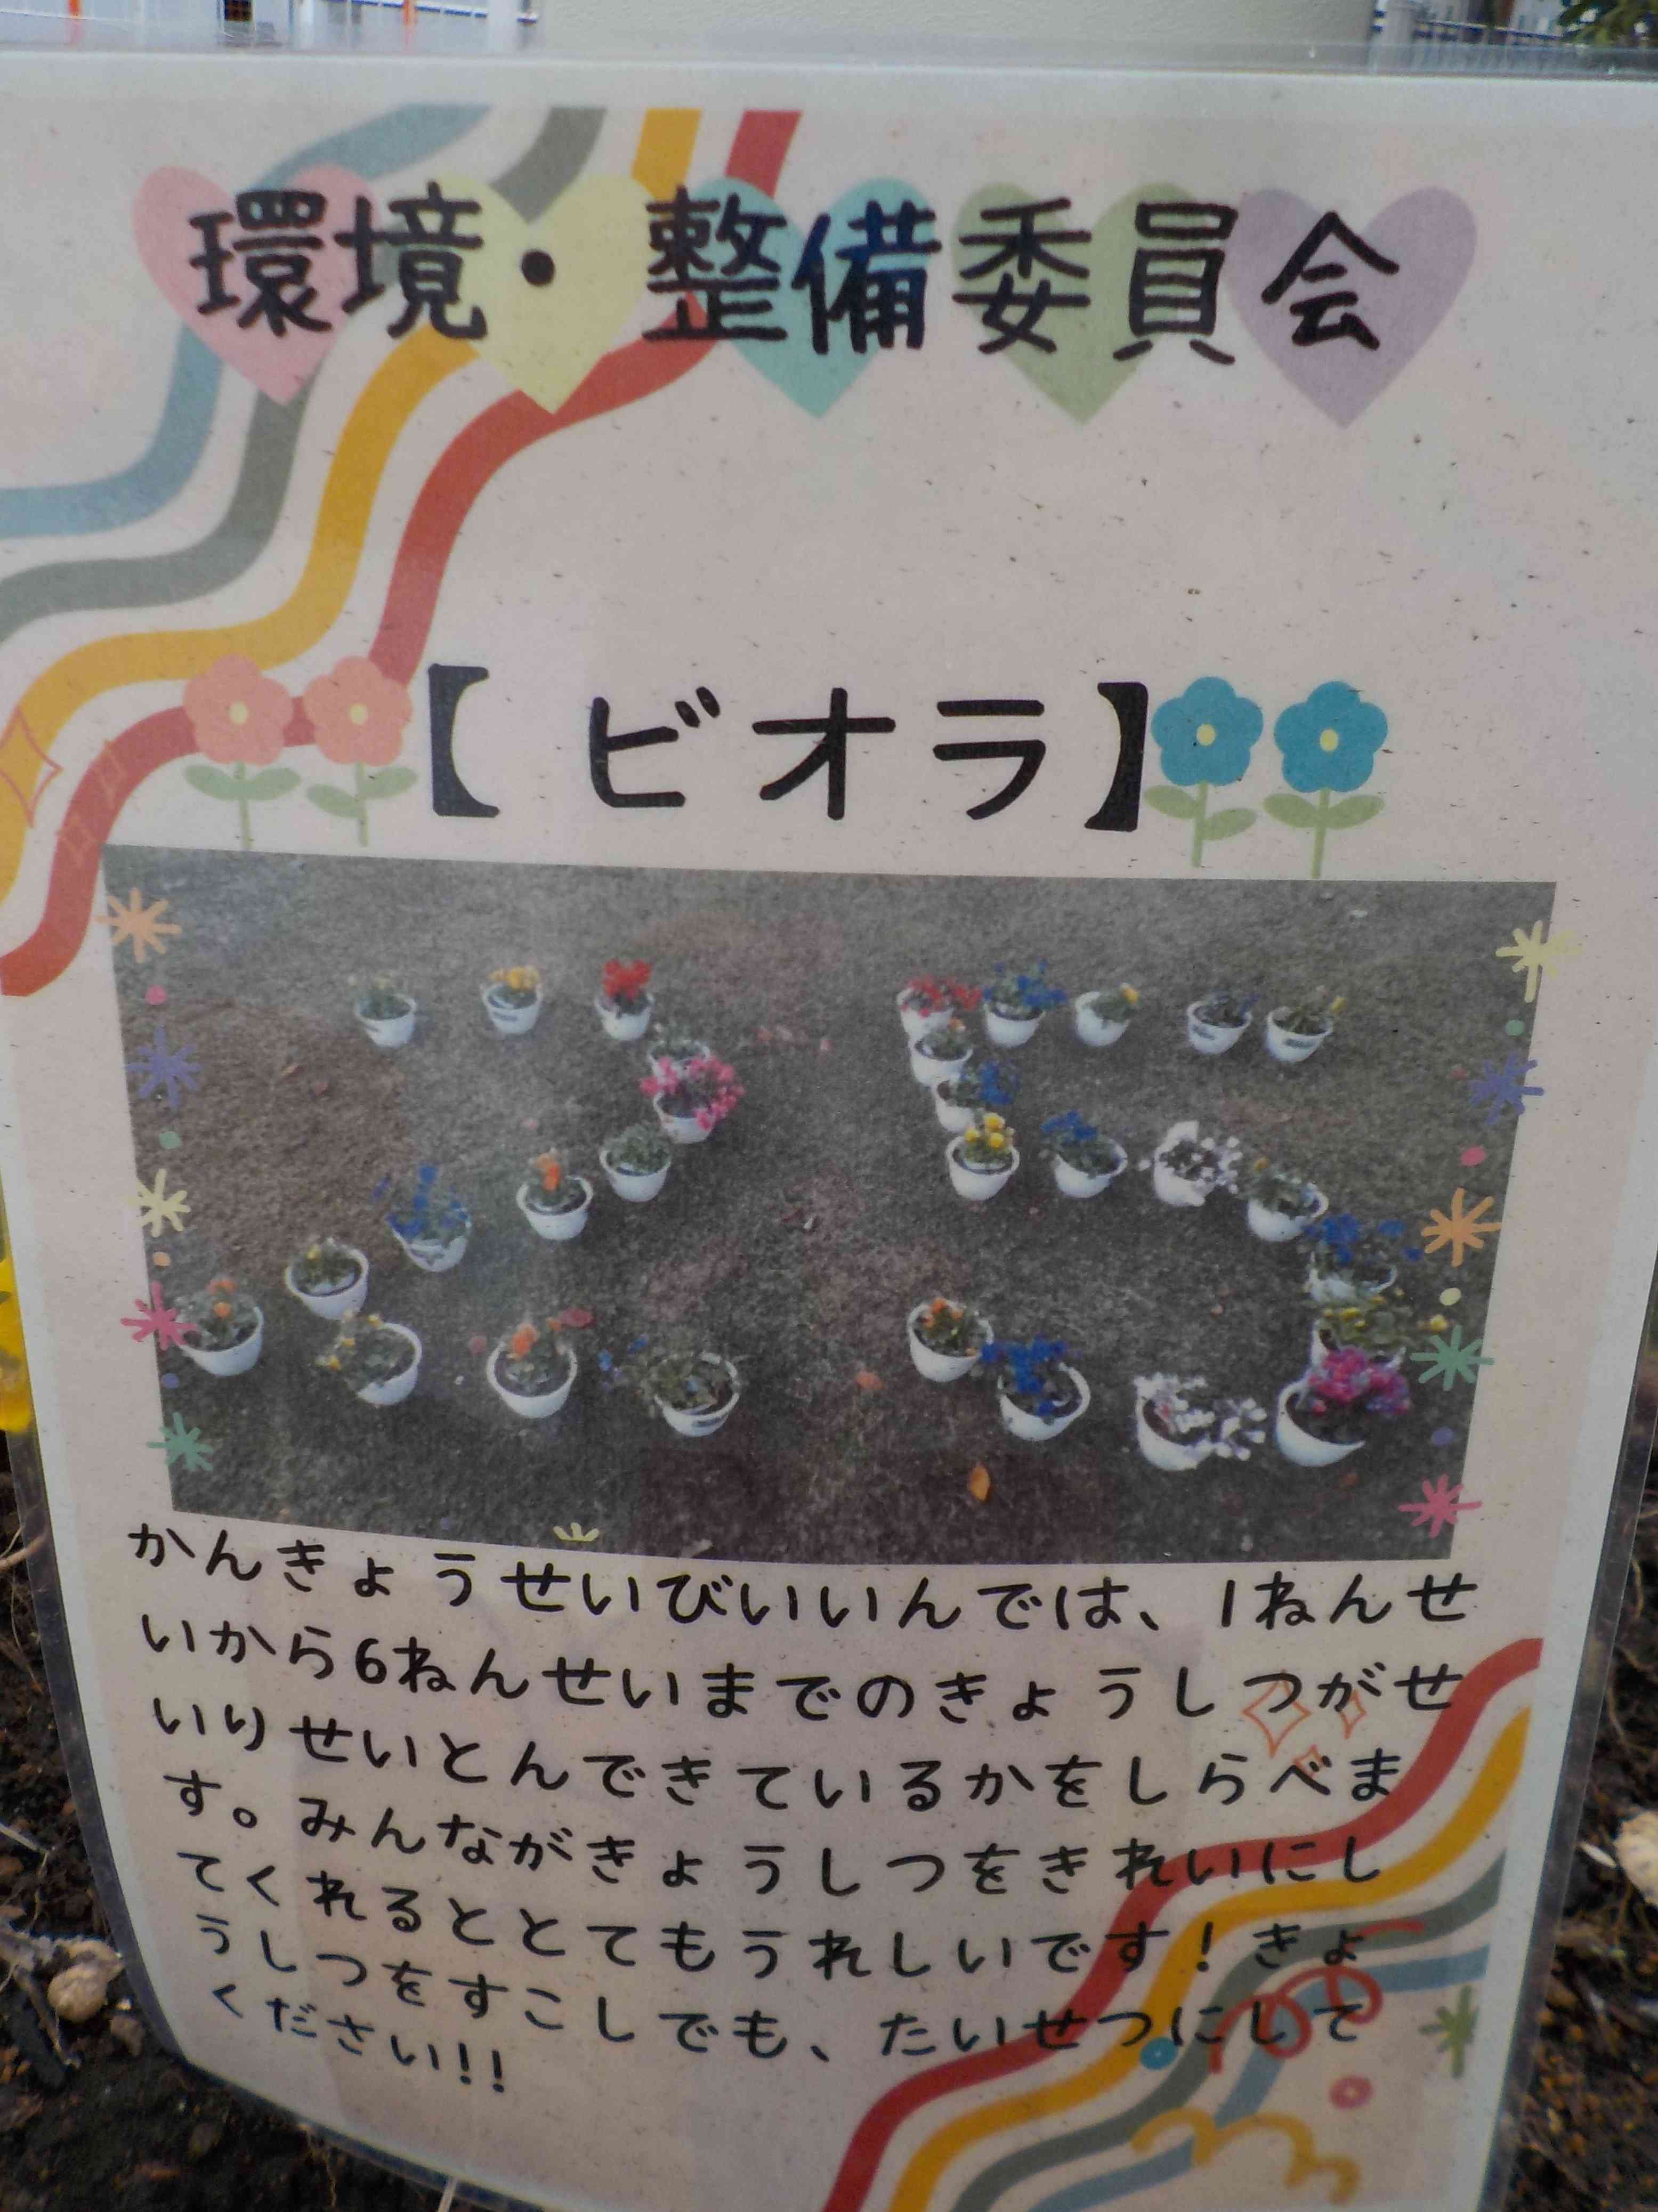 環境・整備委員会
【ビオラ】
かんきょうせいびいいんでは、1ねんせ
いから6ねんせいまでのきょうしつがせ
いりせいとんできているかをしらべま
す。みんながきょうしつをきれいにし
てくれるととてもうれしいです！きょ
うしつをすこしでも、たいせつにして
ください!!